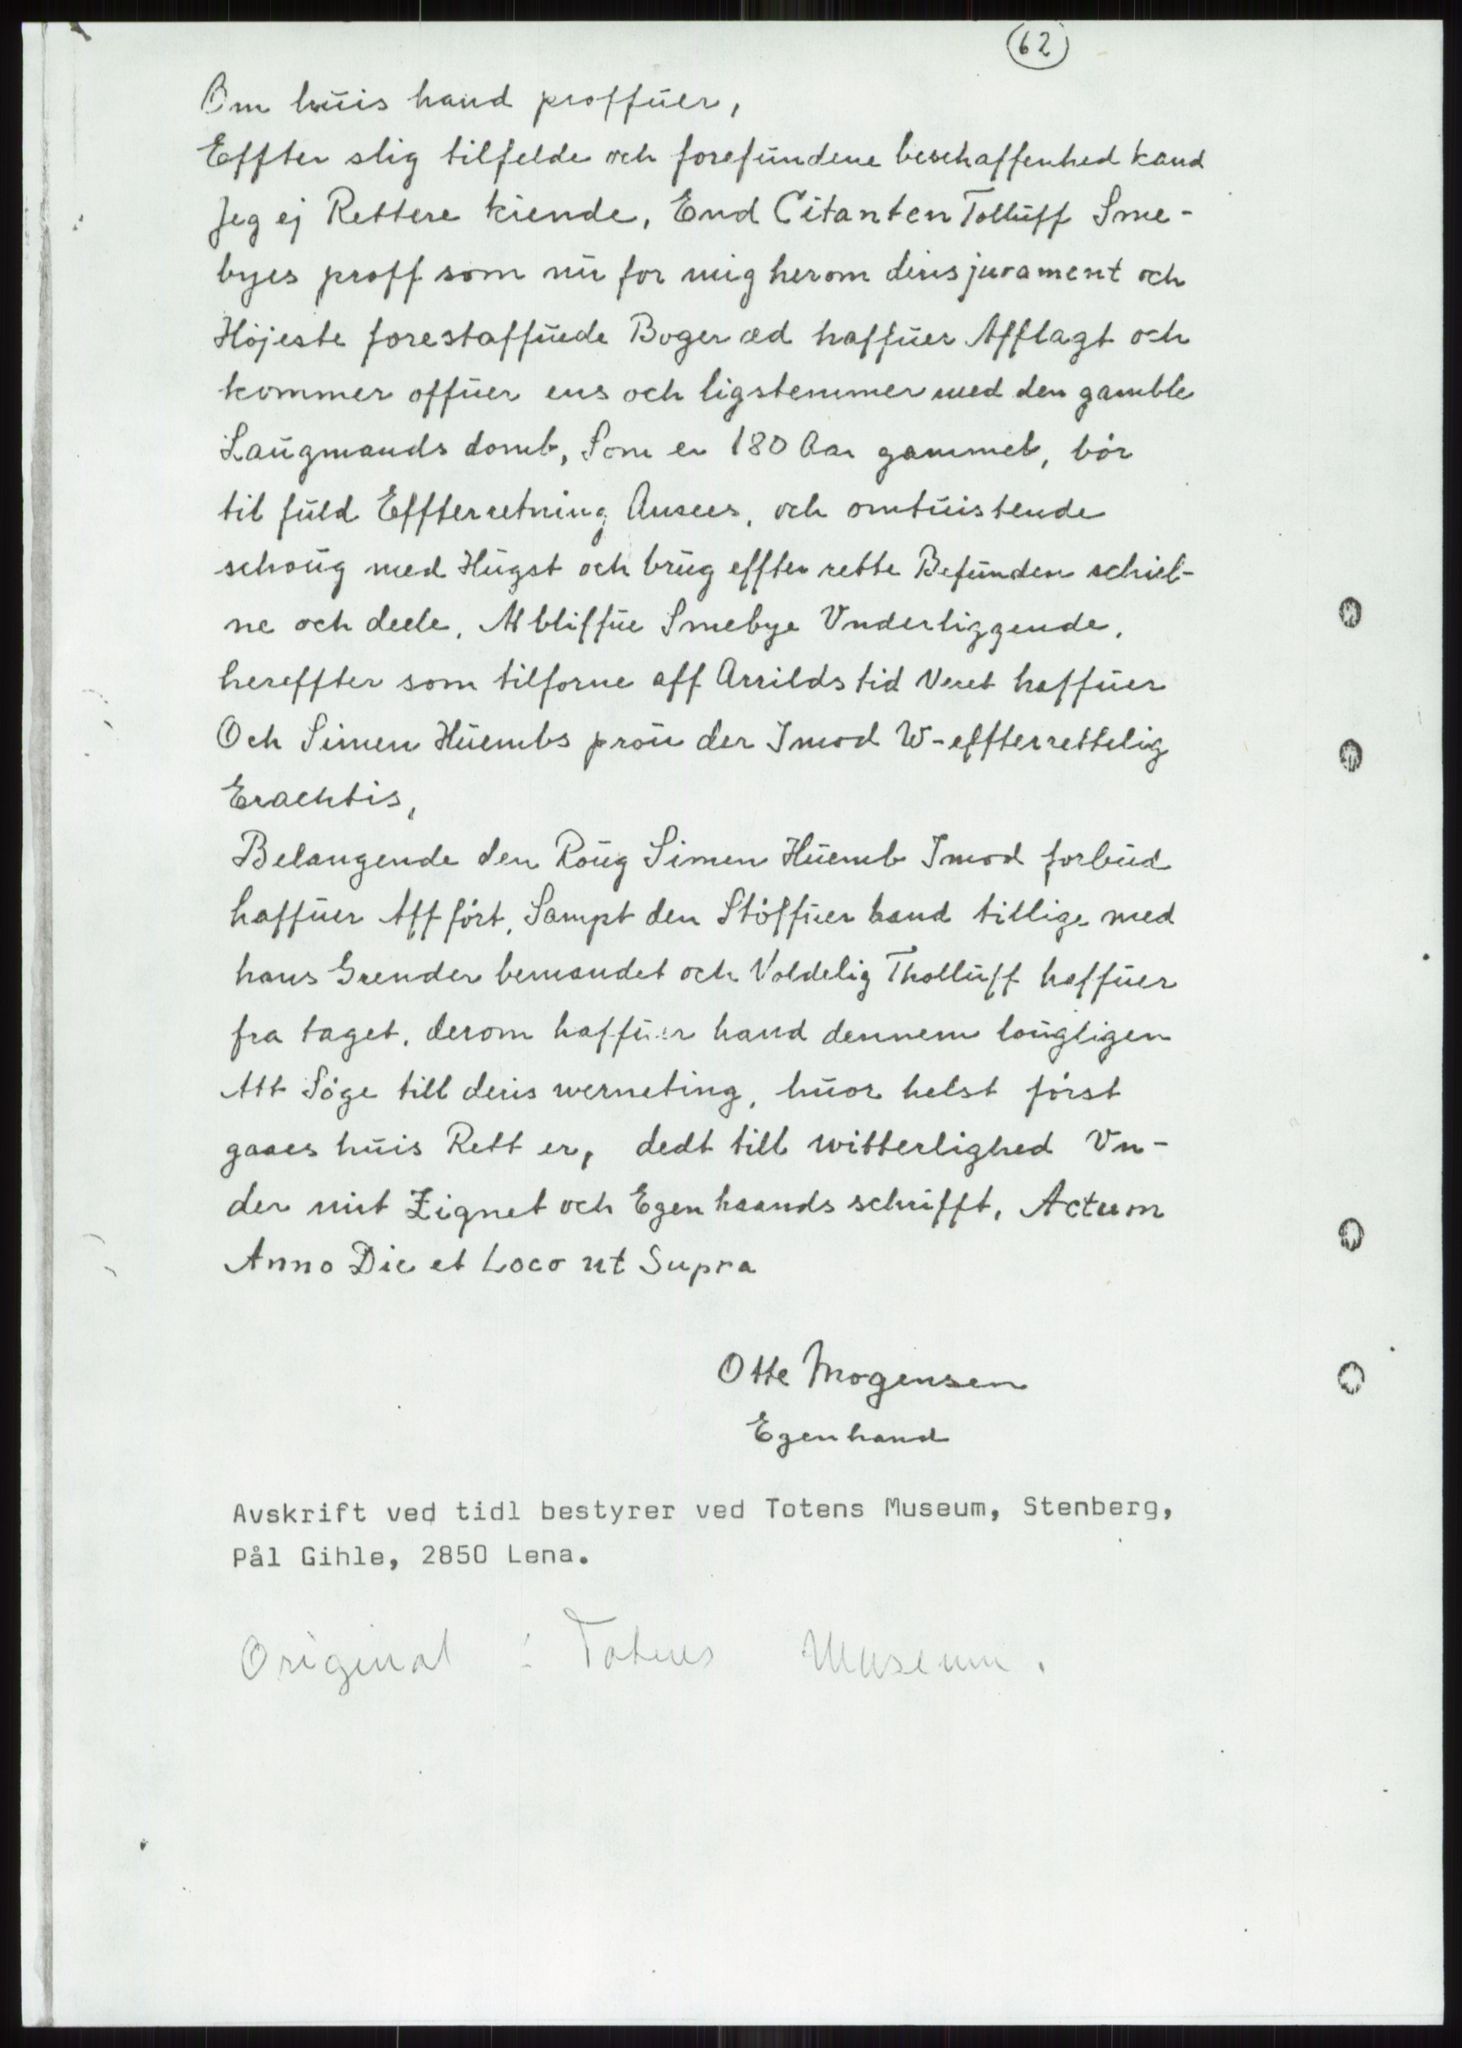 62
Om huis hand proffuer,
Effter slig tilfelde och forefundene beschaffenhed kand
Jeg ej Rettere kiende, End Citanten Tolluff Sme-
byes proff som nu for mig herom deris jurament och
Højeste forestaffuede Boger æd haffuer Afflagt och
kommer offuer ens och ligstemmer med den gamble
Laugmands domb, Som er 180 Aar gammel, bør
til fuld Effterretning Ansees, och omtuistende
schoug med Hugst och brug effter rette Befunden schiel-
ne och deele, At bliffue Smebye Vnderliggende,
hereffter som tilforne aff Arrilds tid Veret haffuer
Och Simen Huembs prou der Imod W-effterrettelig
Erachtis,
Belangende den Roug Simen Huemb Imod forbud
haffuer Affført, Sampt den Støffuer hand tillige med
hans Grender bemandet och Voldelig Tholluff haffuer
fra taget, derom haffuer hand dennem lougligen
Att Søge till deris werneting, huor helst først
gaaes huis Rett er, dedt till witterlighed Vn-
der mit Zignet och Egen haands schrifft, Actum
Anno Die et Loco ut Supra
Otte Mogensen
Egenhand
Avskrift ved tidl bestyrer ved Totens Museum, Stenberg,
Pål Gihle, 2850 Lena.
Original : Totens Museum.